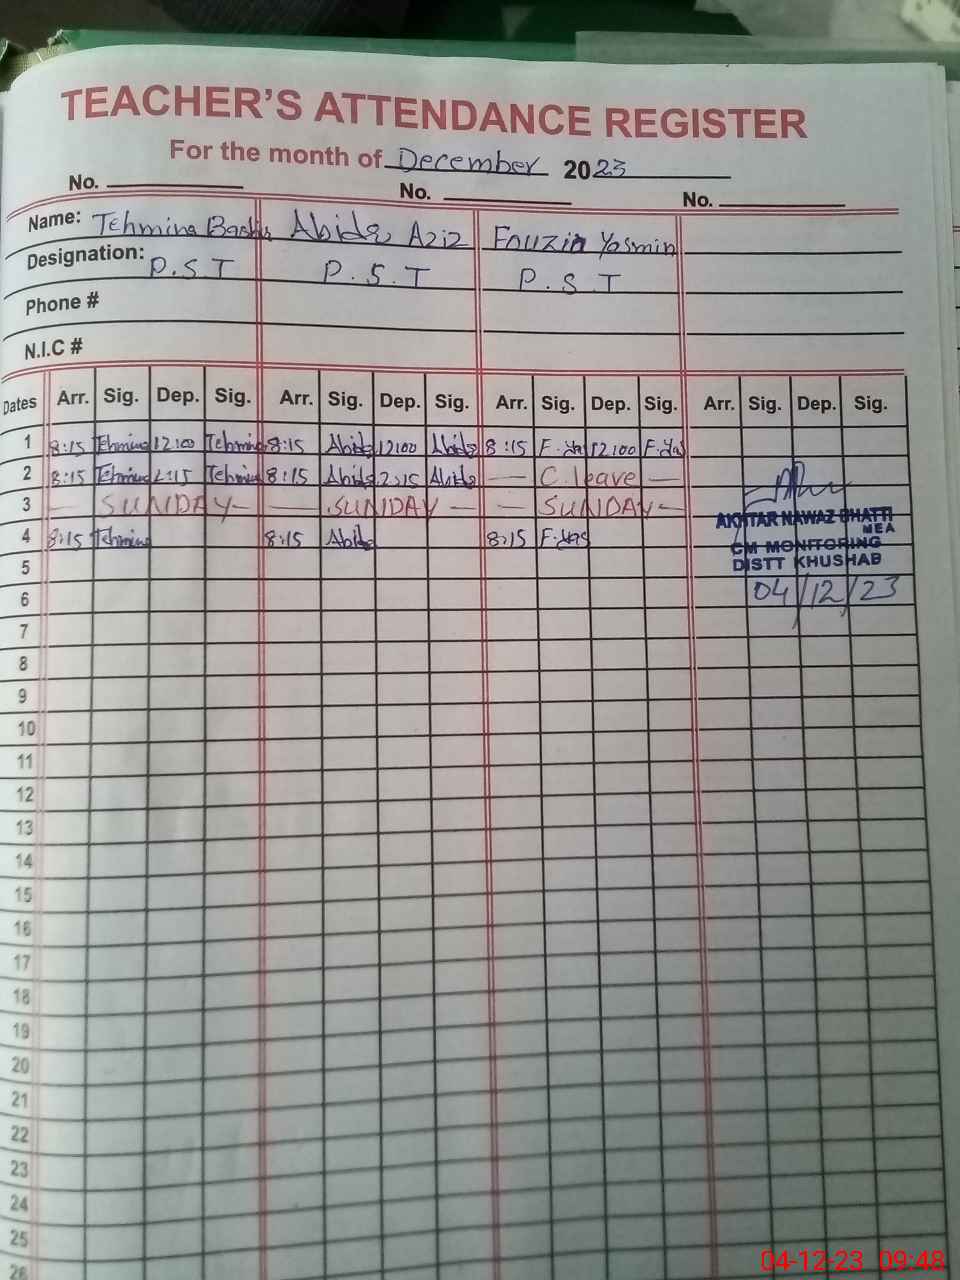 TEACHER'S ATTENDANCE REGISTER
For the month of December 2023
No. No. No.
Name: Tehmina Bashir Abida Aziz Fouzia Yasmin
Designation: P.S.T P.S.T P.S.T
Phone #
N.I.C #
Dates Arr. Sig. Dep. Sig. Arr. Sig. Dep. Sig. Arr. Sig. Dep. Sig. Arr. Sig. Dep. Sig.
1 8:15 Tehmina 12:00 Tehmina 8:15 Abida 12:00 Abida 8:15 F.Yas 12:00 F.Yas
2 8:15 Tehmina 2:15 Tehmina 8:15 Abida 2:15 Abida — C.leave —
3 — SUNDAY — — SUNDAY — — SUNDAY —
AKHTAR NAWAZ BHATTI
MEA
4 8:15 Tehmina 8:15 Abida 8:15 F.Yas
CM MONITORING
DISTT KHUSHAB
5
6 04/12/23
7
8
9
10
11
12
13
14
15
16
17
18
19
20
21
22
23
24
25
26
04-12-23 09:48